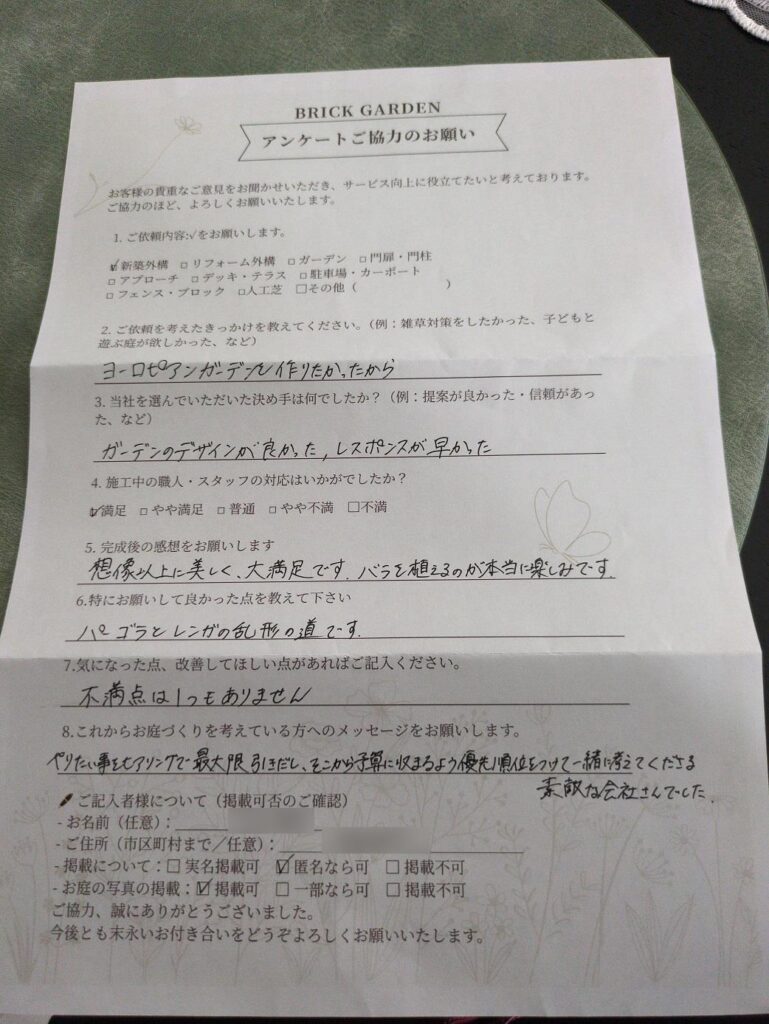 BRICK GARDEN
アンケートご協力のお願い
お客様の貴重なご意見をお聞かせいただき、サービス向上に役立てたいと考えております。
ご協力のほど、よろしくお願いいたします。
1. ご依頼内容:✓をお願いします。
☑新築外構 □リフォーム外構 □ガーデン □門扉・門柱
□アプローチ □デッキ・テラス □駐車場・カーポート
□フェンス・ブロック □人工芝 □その他（ ）
2. ご依頼を考えたきっかけを教えてください。（例：雑草対策をしたかった、子どもと
遊ぶ庭が欲しかった、など）
ヨーロピアンガーデンを作りたかったから
3. 当社を選んでいただいた決め手は何でしたか？（例：提案が良かった・信頼があっ
た、など）
ガーデンのデザインが良かった, レスポンスが早かった
4. 施工中の職人・スタッフの対応はいかがでしたか？
☑満足 □やや満足 □普通 □やや不満 □不満
5. 完成後の感想をお願いします
想像以上に美しく、大満足です. バラを植えるのが本当に楽しみです.
6.特にお願いして良かった点を教えて下さい
パーゴラとレンガの乱形の道です.
7.気になった点、改善してほしい点があればご記入ください。
不満点は1つもありません
8.これからお庭づくりを考えている方へのメッセージをお願いします。
やりたい事をヒアリングで最大限引きだし、そこから予算に収まるよう優先順位をつけて一緒に考えてくださる
素敵な会社さんでした.
ご記入者様について（掲載可否のご確認）
- お名前（任意）:
- ご住所（市区町村まで／任意）:
- 掲載について：□ 実名掲載可 ☑ 匿名なら可 □ 掲載不可
- お庭の写真の掲載：☑ 掲載可 □ 一部なら可 □ 掲載不可
ご協力、誠にありがとうございました。
今後とも末永いお付き合いをどうぞよろしくお願いいたします。